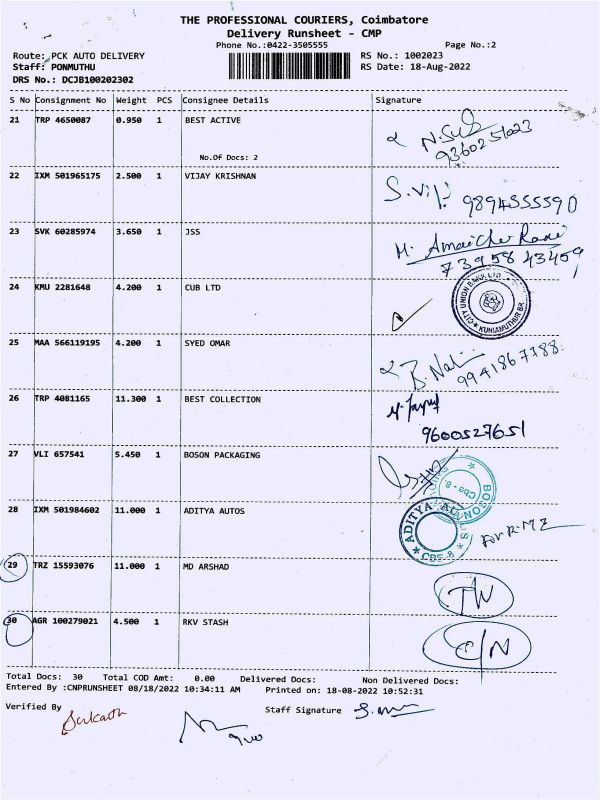 THE PROFESSIONAL COURIERS, Coimbatore
Delivery Runsheet - CMP
Phone No.:0422-3505555 Page No.:2
Route: PCK AUTO DELIVERY RS No.: 1002023
Staff: PONMUTHU RS Date: 18-Aug-2022
DRS No.: DCJB100202302
S No Consignment No Weight PCS Consignee Details Signature
21 TRP 4650087 0.950 1 BEST ACTIVE
9360251023
No.Of Docs: 2
22 IXM 501965175 2.500 1 VIJAY KRISHNAN
9894555590
23 SVK 60285974 3.650 1 JSS
7395843459
24 KMU 2281648 4.200 1 CUB LTD
CITY UNION BANK LTD
KUNIAMUTHUR BR.
25 MAA 566119195 4.200 1 SYED OMAR
9941867788
26 TRP 4081165 11.300 1 BEST COLLECTION
9600527651
27 VLI 657541 5.450 1 BOSON PACKAGING
BOSON
Cbe-8
28 IXM 501984602 11.000 1 ADITYA AUTOS
ADITYA AUTOS
CBE-8
29 TRZ 15593076 11.000 1 MD ARSHAD
30 AGR 100279021 4.500 1 RKV STASH
Total Docs: 30 Total COD Amt: 0.00 Delivered Docs: Non Delivered Docs:
Entered By :CNPRUNSHEET 08/18/2022 10:34:11 AM Printed on: 18-08-2022 10:52:31
Verified By Staff Signature